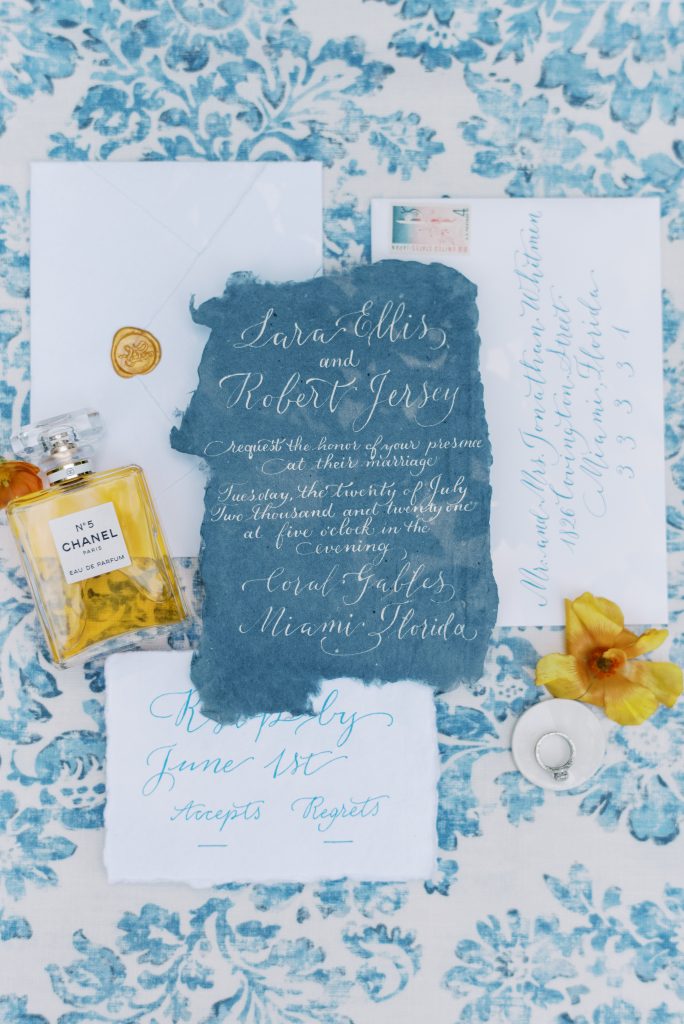 Sara Ellis
and
Robert Jersey
request the honor of your presence
at their marriage
Tuesday, the twenty of July
Two thousand and twenty one
at five o'clock in the
evening
Coral Gables
Miami Florida
Rsvp by
June 1st
Accepts Regrets
Mr. and Mrs. Jonathan Whitmen
1826 Covington Street
Miami, Florida
33331
N°5
CHANEL
PARIS
EAU DE PARFUM